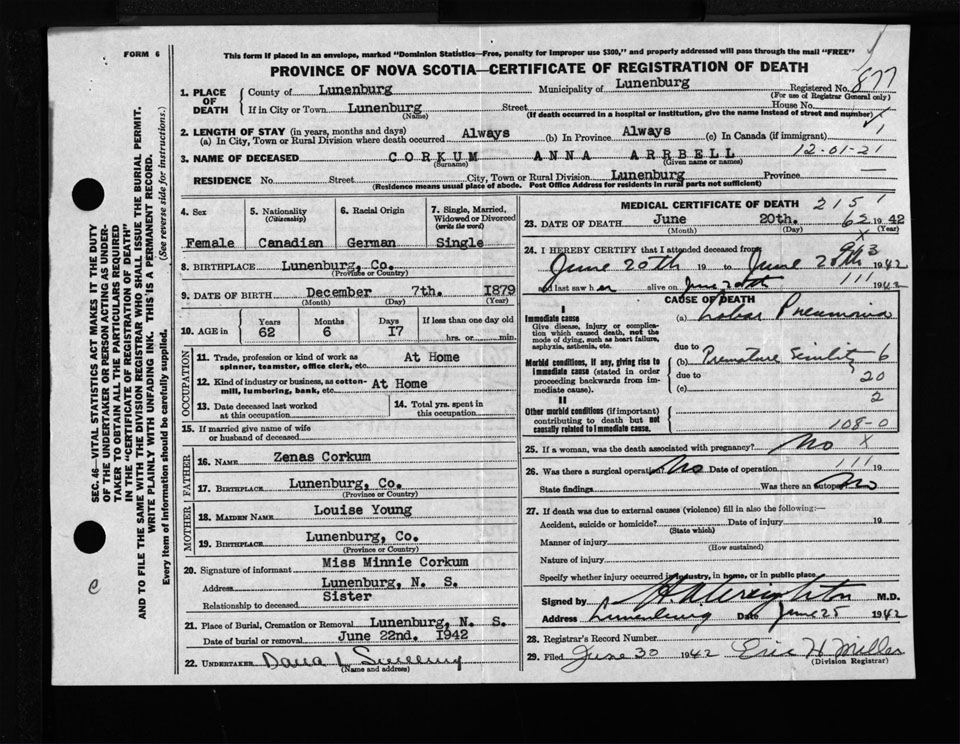 FORM 6
This form if placed in an envelope, marked "Dominion Statistics—Free, penalty for improper use $300," and properly addressed will pass through the mail "FREE"
PROVINCE OF NOVA SCOTIA—CERTIFICATE OF REGISTRATION OF DEATH
877
1. PLACE OF DEATH
County of Lunenburg Municipality of Lunenburg Registered No.
(For use of Registrar General only)
If in City or Town Lunenburg Street House No.
(Name) (If death occurred in a hospital or institution, give the name instead of street and number)
2. LENGTH OF STAY (in years, months and days)
(a) In City, Town or Rural Division where death occurred Always (b) In Province Always (c) In Canada (if immigrant)
3. NAME OF DECEASED CORKUM ANNA ARRBELL 12-01-21
(Surname) (Given name or names)
RESIDENCE No. Street City, Town or Rural Division Lunenburg Province
(Residence means usual place of abode. Post Office Address for residents in rural parts not sufficient)
4. Sex
Female
5. Nationality (Citizenship)
Canadian
6. Racial Origin
German
7. Single, Married, Widowed or Divorced (write the word)
Single
8. BIRTHPLACE Lunenburg, Co.
(Province or Country)
9. DATE OF BIRTH December 7th. 1879
(Month) (Day) (Year)
10. AGE in
Years Months Days If less than one day old
62 6 17 hrs. or min.
OCCUPATION
11. Trade, profession or kind of work as spinner, teamster, office clerk, etc. At Home
12. Kind of industry or business, as cotton-mill, lumbering, bank, etc. At Home
13. Date deceased last worked at this occupation
14. Total yrs. spent in this occupation
15. If married give name of wife or husband of deceased
FATHER
16. NAME Zenas Corkum
17. BIRTHPLACE Lunenburg, Co.
(Province or Country)
MOTHER
18. MAIDEN NAME Louise Young
19. BIRTHPLACE Lunenburg, Co.
(Province or Country)
20. Signature of informant Miss Minnie Corkum
Address Lunenburg, N. S.
Relationship to deceased Sister
21. Place of Burial, Cremation or Removal Lunenburg, N. S.
Date of burial or removal June 22nd. 1942
22. UNDERTAKER
(Name and address)
MEDICAL CERTIFICATE OF DEATH 2151
23. DATE OF DEATH June 20th. 62 1942
(Month) (Day) (Year)
24. I HEREBY CERTIFY that I attended deceased from
June 20th 19 to June 20th 1942
and last saw her alive on June 20th 1942
111
CAUSE OF DEATH
I
Immediate cause
Give disease, injury or complication which caused death, not the mode of dying, such as heart failure, asphyxia, asthenia, etc.
(a) Lobar Pneumonia
due to
Morbid conditions, if any, giving rise to immediate cause (stated in order proceeding backwards from immediate cause).
(b) Premature Senility 6
due to 20
(c)
2
II
Other morbid conditions (if important) contributing to death but not causally related to immediate cause.
108-0
25. If a woman, was the death associated with pregnancy? No X
26. Was there a surgical operation? No Date of operation 111 19
State findings Was there an autopsy? No
27. If death was due to external causes (violence) fill in also the following:—
Accident, suicide or homicide? Date of injury 19
(State which)
Manner of injury
(How sustained)
Nature of injury
Specify whether injury occurred in industry, in home, or in public place
Signed by M.D.
Address Lunenburg Date June 25 1942
28. Registrar's Record Number
29. Filed June 30 1942 Eric H Miller
(Division Registrar)
SEC. 46—VITAL STATISTICS ACT MAKES IT THE DUTY
OF THE UNDERTAKER OR PERSON ACTING AS UNDER-
TAKER TO OBTAIN ALL THE PARTICULARS REQUIRED
IN THE "CERTIFICATE OF REGISTRATION OF DEATH"
AND TO FILE THE SAME WITH THE DIVISION REGISTRAR WHO SHALL ISSUE THE BURIAL PERMIT.
WRITE PLAINLY WITH UNFADING INK. THIS IS A PERMANENT RECORD.
Every item of information should be carefully supplied. (See reverse side for instructions.)